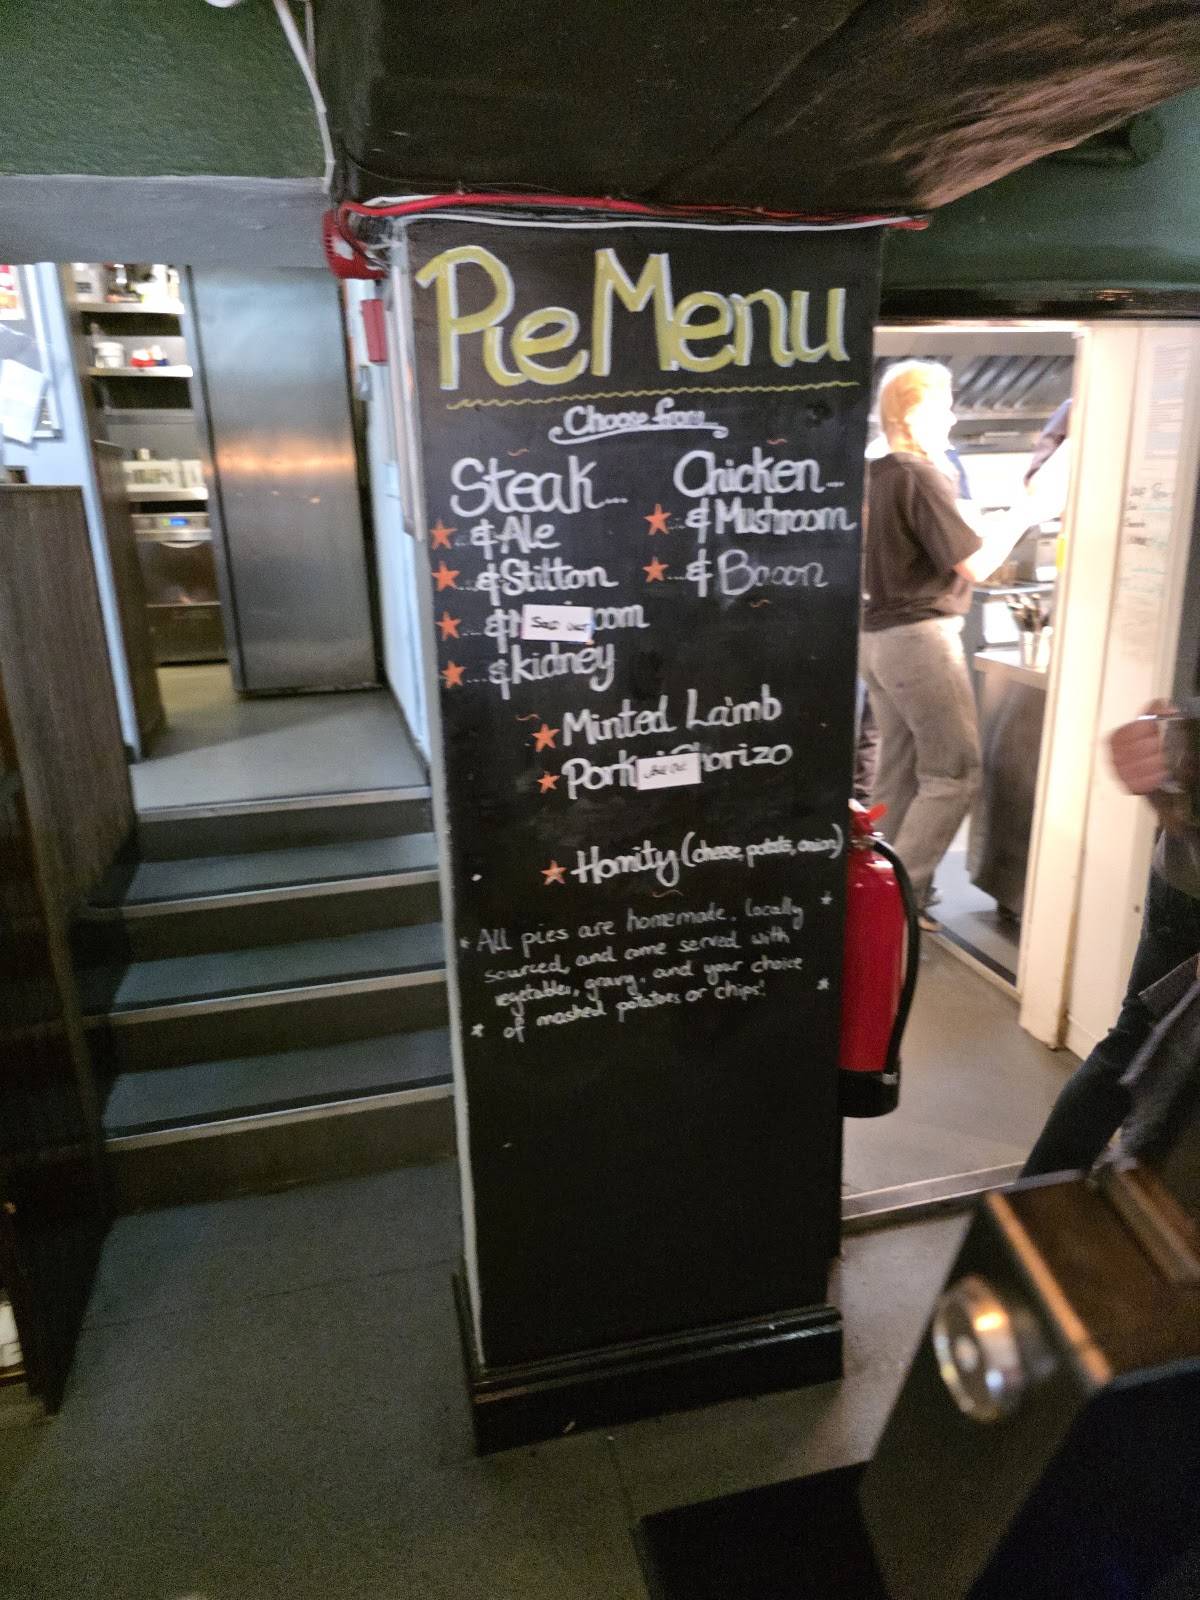 Pie Menu
Choose from...
Steak...
...& Ale
...& Stilton
...& Sold out oom
...& kidney
Chicken...
...& Mushroom
...& Bacon
Minted Lamb
Pork Sold Out horizo
Homity (cheese, potato, onion)
* All pies are homemade, locally *
sourced, and come served with
vegetables, gravy, and your choice
* of mashed potatoes or chips! *